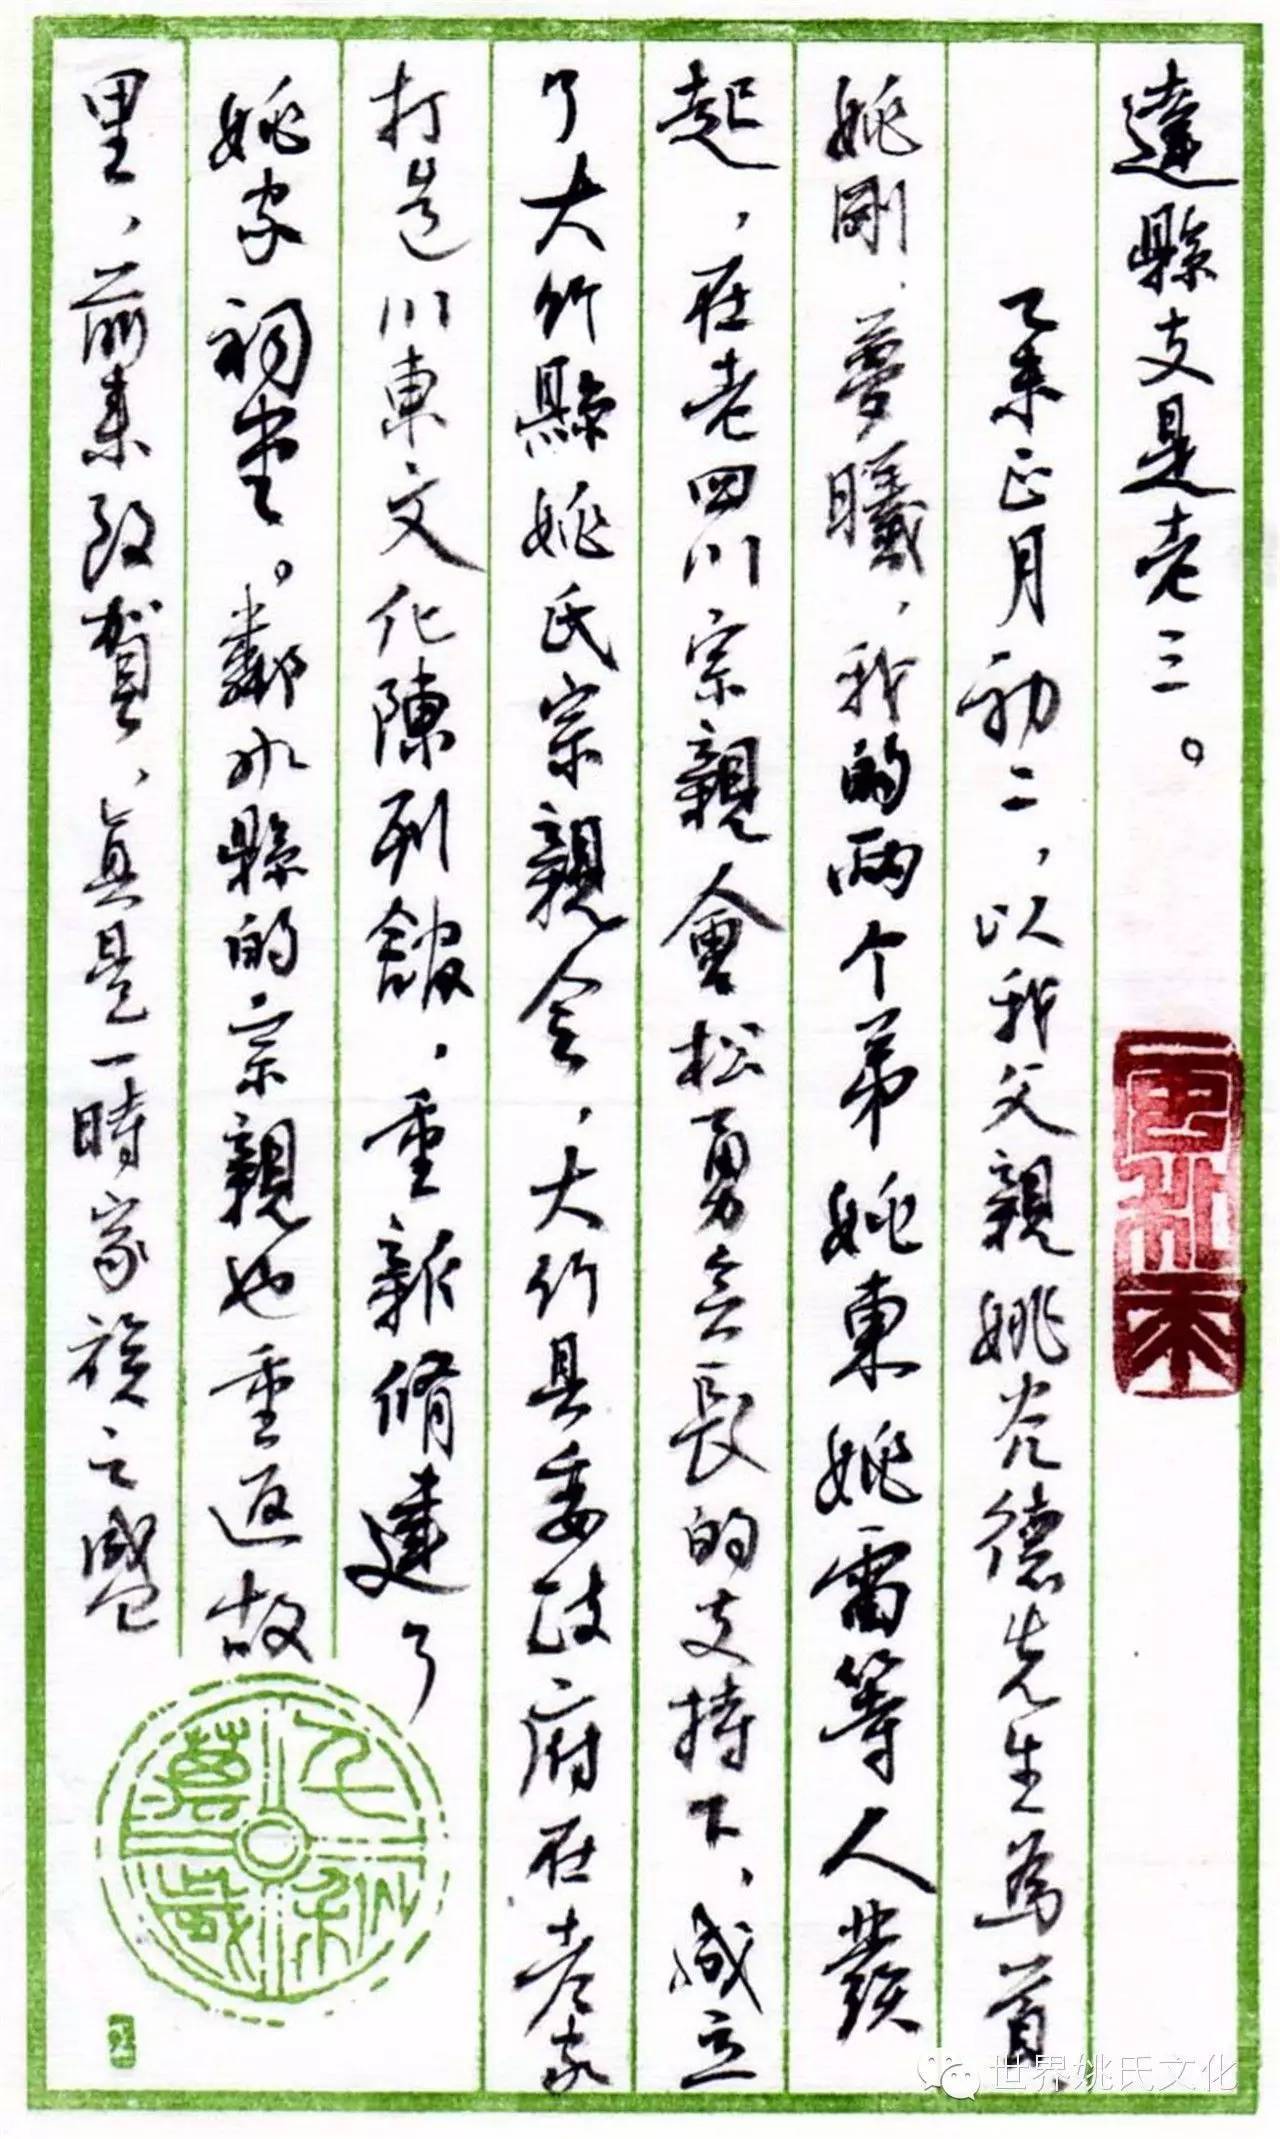 達縣支是老三。
乙未正月初二，以我父親姚光德先生為首，
姚剛、夢曦，我的兩个弟弟姚東姚雷等人發
起，在老四川宗親會松勇会長的支持下，成立
了大竹縣姚氏宗親会，大竹县委政府在老家
打造川東文化陳列館，重新修建了
姚家祠堂。鄰水縣的宗親也重返故
里，前來致賀，真是一時家族之盛
世界姚氏文化